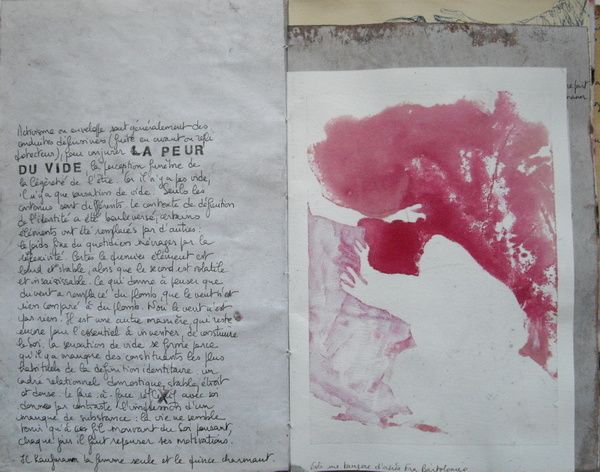 Activisme ou enveloppe sont généralement des
conduites défensives (fuite en avant ou repli
protecteur), pour conjurer LA PEUR
DU VIDE la perception funèbre de
la légèreté de l'être. Or il n'y a pas vide,
il n'y a que sensation de vide. Seuls les
contenus sont différents. Le contexte de définition
de l'identité a été bouleversé, certains
éléments ont été remplacés par d'autres:
le poids fixe du quotidien ménager par la
réflexivité. Certes le premier élément est
lourd et stable, alors que le second est volatile
et insaisissable. Ce qui donne à penser que
du vent a remplacé du plomb, que le vent n'est
rien comparé à du plomb. Or le vent n'est
pas rien. Il est une autre manière, qui reste
encore pour l'essentiel à inventer, de construire
le soi. La sensation de vide se forme parce
qu'il y a manque des constituants les plus
habituels de la définition identitaire: un
cadre relationnel domestique, stable, étroit
et dense. Le face à face réflexif avec soi
donne par contraste l'impression d'un
manque de substance: la vie ne semble
tenir qu'à ce fil mouvant du soi pensant,
chaque jour il faut repenser ses motivations.
JC Kaufmann la femme seule et le prince charmant.
d'après Fra Bartolomeo